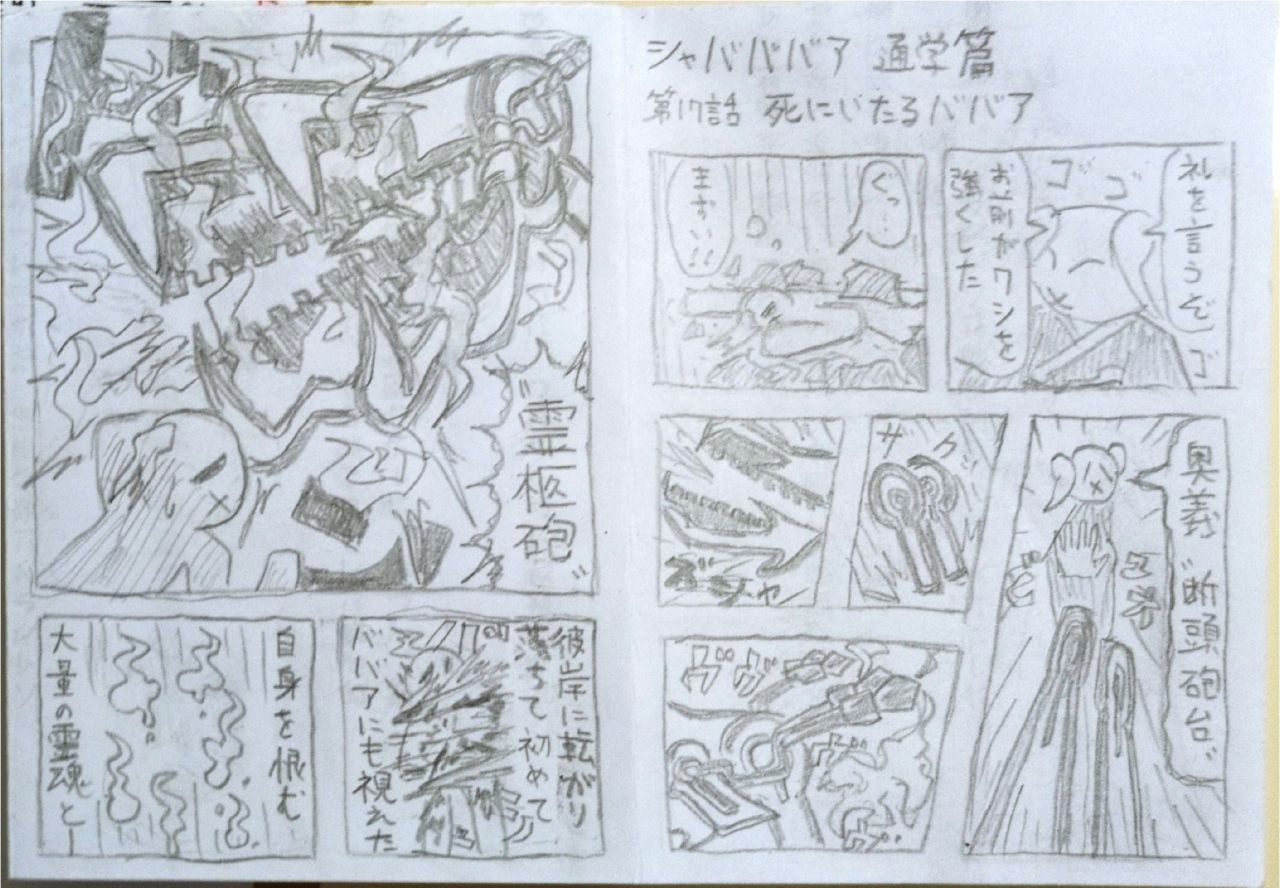 シャバババア 通学篇
第17話 死にいたるババア
礼を言うぞ
ゴ
ゴ
ゴ
お前がワシを
強くした
くっ…
まずい!!
奥義〝断頭砲台〟
サクッ
ズシャ
ヴヴ
〝霊柩砲〟
彼岸に転がり
落ちて初めて
ババアにも視えた
自身を恨む
大量の霊魂と―